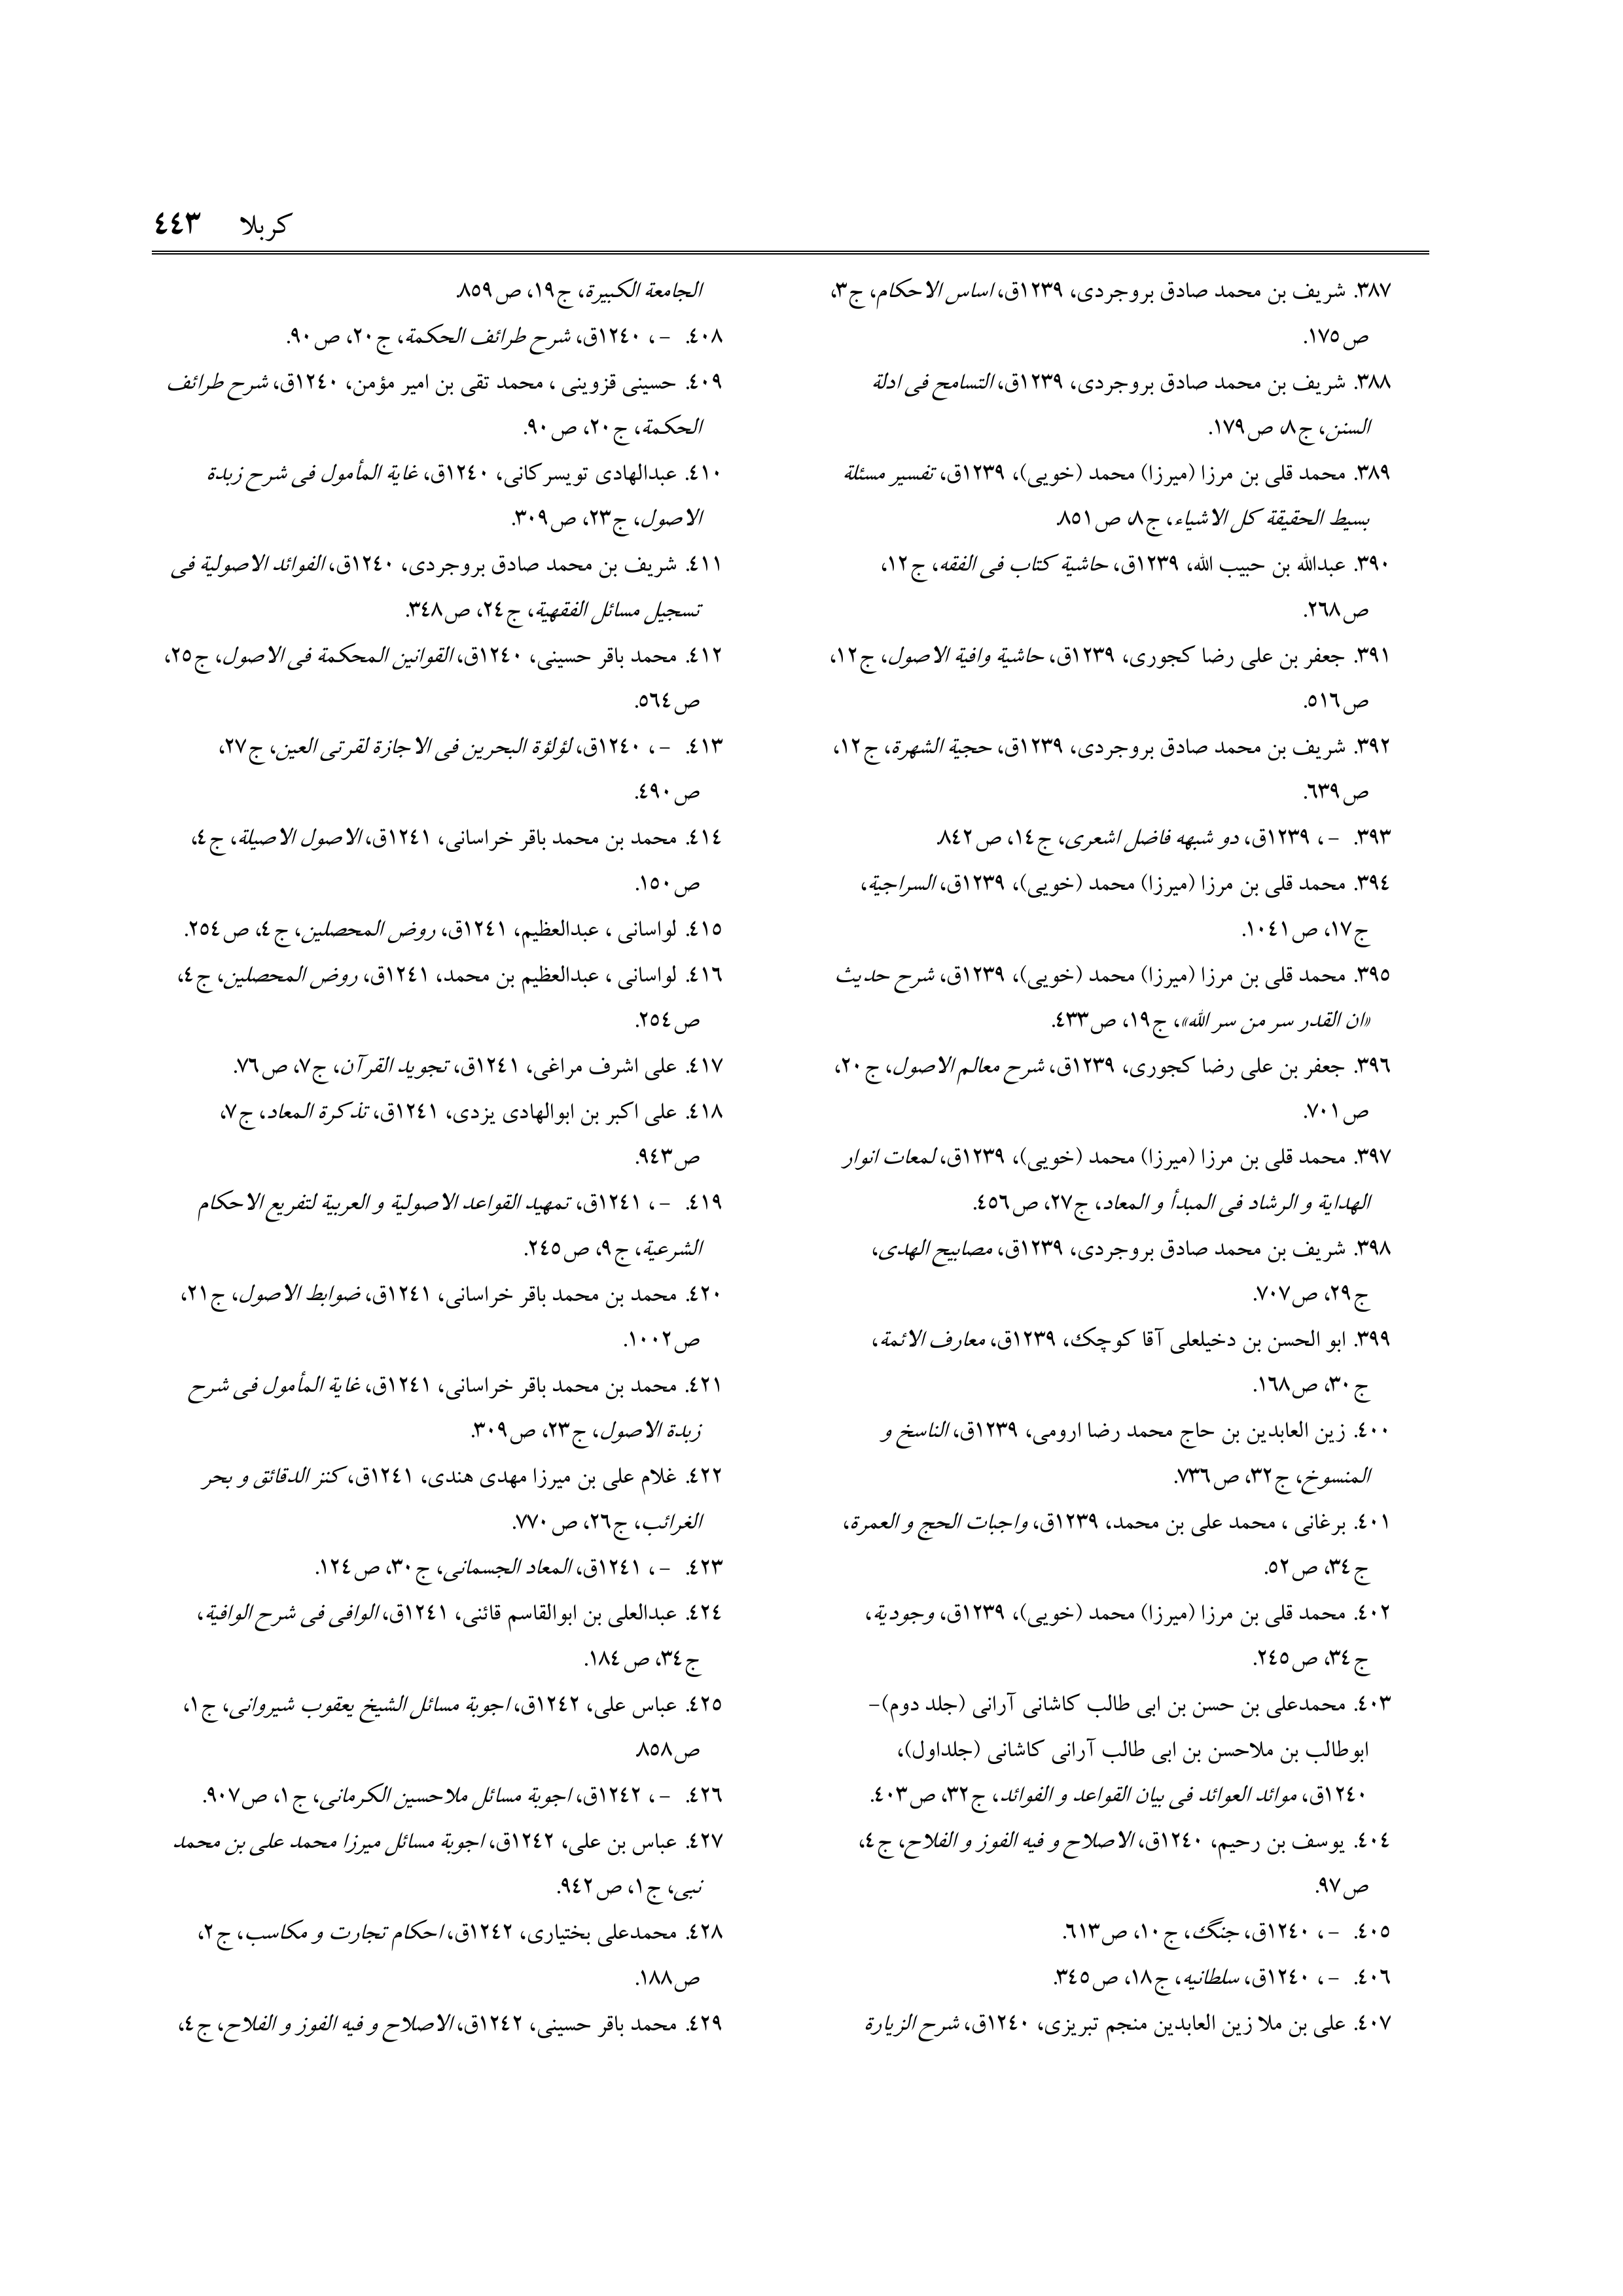 کربلا ٤٤٣
٣٨٧. شریف بن محمد صادق بروجردی، ١٢٣٩ق، اساس الاحکام، ج٣،
ص١٧٥.
٣٨٨. شریف بن محمد صادق بروجردی، ١٢٣٩ق، التسامح فی ادلة
السنن، ج٨، ص١٧٩.
٣٨٩. محمد قلی بن مرزا (میرزا) محمد (خویی)، ١٢٣٩ق، تفسیر مسئلة
بسیط الحقیقة کل الاشیاء، ج٨، ص٨٥١.
٣٩٠. عبدالله بن حبیب الله، ١٢٣٩ق، حاشیة کتاب فی الفقه، ج١٢،
ص٢٦٨.
٣٩١. جعفر بن علی رضا کجوری، ١٢٣٩ق، حاشیة وافیة الاصول، ج١٢،
ص٥١٦.
٣٩٢. شریف بن محمد صادق بروجردی، ١٢٣٩ق، حجیة الشهرة، ج١٢،
ص٦٣٩.
٣٩٣. -، ١٢٣٩ق، دو شبهه فاضل اشعری، ج١٤، ص٨٤٢.
٣٩٤. محمد قلی بن مرزا (میرزا) محمد (خویی)، ١٢٣٩ق، السراجیة،
ج١٧، ص١٠٤١.
٣٩٥. محمد قلی بن مرزا (میرزا) محمد (خویی)، ١٢٣٩ق، شرح حدیث
«ان القدر سر من سر الله»، ج١٩، ص٤٣٣.
٣٩٦. جعفر بن علی رضا کجوری، ١٢٣٩ق، شرح معالم الاصول، ج٢٠،
ص٧٠١.
٣٩٧. محمد قلی بن مرزا (میرزا) محمد (خویی)، ١٢٣٩ق، لمعات انوار
الهدایة و الرشاد فی المبدأ و المعاد، ج٢٧، ص٤٥٦.
٣٩٨. شریف بن محمد صادق بروجردی، ١٢٣٩ق، مصابیح الهدی،
ج٢٩، ص٧٠٧.
٣٩٩. ابو الحسن بن دخیلعلی آقا کوچک، ١٢٣٩ق، معارف الائمة،
ج٣٠، ص١٦٨.
٤٠٠. زین العابدین بن حاج محمد رضا ارومی، ١٢٣٩ق، الناسخ و
المنسوخ، ج٣٢، ص٧٣٦.
٤٠١. برغانی ، محمد علی بن محمد، ١٢٣٩ق، واجبات الحج و العمرة،
ج٣٤، ص٥٢.
٤٠٢. محمد قلی بن مرزا (میرزا) محمد (خویی)، ١٢٣٩ق، وجودیة،
ج٣٤، ص٢٤٥.
٤٠٣. محمدعلی بن حسن بن ابی طالب کاشانی آرانی (جلد دوم)-
ابوطالب بن ملاحسن بن ابی طالب آرانی کاشانی (جلداول)،
١٢٤٠ق، موائد العوائد فی بیان القواعد و الفوائد، ج٣٢، ص٤٠٣.
٤٠٤. یوسف بن رحیم، ١٢٤٠ق، الاصلاح و فیه الفوز و الفلاح، ج٤،
ص٩٧.
٤٠٥. -، ١٢٤٠ق، جنگ، ج١٠، ص٦١٣.
٤٠٦. -، ١٢٤٠ق، سلطانیه، ج١٨، ص٣٤٥.
٤٠٧. علی بن ملا زین العابدین منجم تبریزی، ١٢٤٠ق، شرح الزیارة
الجامعة الکبیرة، ج١٩، ص٨٥٩.
٤٠٨. -، ١٢٤٠ق، شرح طرائف الحکمة، ج٢٠، ص٩٠.
٤٠٩. حسینی قزوینی ، محمد تقی بن امیر مؤمن، ١٢٤٠ق، شرح طرائف
الحکمة، ج٢٠، ص٩٠.
٤١٠. عبدالهادی تویسرکانی، ١٢٤٠ق، غایة المأمول فی شرح زبدة
الاصول، ج٢٣، ص٣٠٩.
٤١١. شریف بن محمد صادق بروجردی، ١٢٤٠ق، الفوائد الاصولیة فی
تسجیل مسائل الفقهیة، ج٢٤، ص٣٤٨.
٤١٢. محمد باقر حسینی، ١٢٤٠ق، القوانین المحکمة فی الاصول، ج٢٥،
ص٥٦٤.
٤١٣. -، ١٢٤٠ق، لؤلؤة البحرین فی الاجازة لقرتی العین، ج٢٧،
ص٤٩٠.
٤١٤. محمد بن محمد باقر خراسانی، ١٢٤١ق، الاصول الاصیلة، ج٤،
ص١٥٠.
٤١٥. لواسانی ، عبدالعظیم، ١٢٤١ق، روض المحصلین، ج٤، ص٢٥٤.
٤١٦. لواسانی ، عبدالعظیم بن محمد، ١٢٤١ق، روض المحصلین، ج٤،
ص٢٥٤.
٤١٧. علی اشرف مراغی، ١٢٤١ق، تجوید القرآن، ج٧، ص٧٦.
٤١٨. علی اکبر بن ابوالهادی یزدی، ١٢٤١ق، تذکرة المعاد، ج٧،
ص٩٤٣.
٤١٩. -، ١٢٤١ق، تمهید القواعد الاصولیة و العربیة لتفریع الاحکام
الشرعیة، ج٩، ص٢٤٥.
٤٢٠. محمد بن محمد باقر خراسانی، ١٢٤١ق، ضوابط الاصول، ج٢١،
ص١٠٠٢.
٤٢١. محمد بن محمد باقر خراسانی، ١٢٤١ق، غایة المأمول فی شرح
زبدة الاصول، ج٢٣، ص٣٠٩.
٤٢٢. غلام علی بن میرزا مهدی هندی، ١٢٤١ق، کنز الدقائق و بحر
الغرائب، ج٢٦، ص٧٧٠.
٤٢٣. -، ١٢٤١ق، المعاد الجسمانی، ج٣٠، ص١٢٤.
٤٢٤. عبدالعلی بن ابوالقاسم قائنی، ١٢٤١ق، الوافی فی شرح الوافیة،
ج٣٤، ص١٨٤.
٤٢٥. عباس علی، ١٢٤٢ق، اجوبة مسائل الشیخ یعقوب شیروانی، ج١،
ص٨٥٨.
٤٢٦. -، ١٢٤٢ق، اجوبة مسائل ملاحسین الکرمانی، ج١، ص٩٠٧.
٤٢٧. عباس بن علی، ١٢٤٢ق، اجوبة مسائل میرزا محمد علی بن محمد
نبی، ج١، ص٩٤٢.
٤٢٨. محمدعلی بختیاری، ١٢٤٢ق، احکام تجارت و مکاسب، ج٢،
ص١٨٨.
٤٢٩. محمد باقر حسینی، ١٢٤٢ق، الاصلاح و فیه الفوز و الفلاح، ج٤،